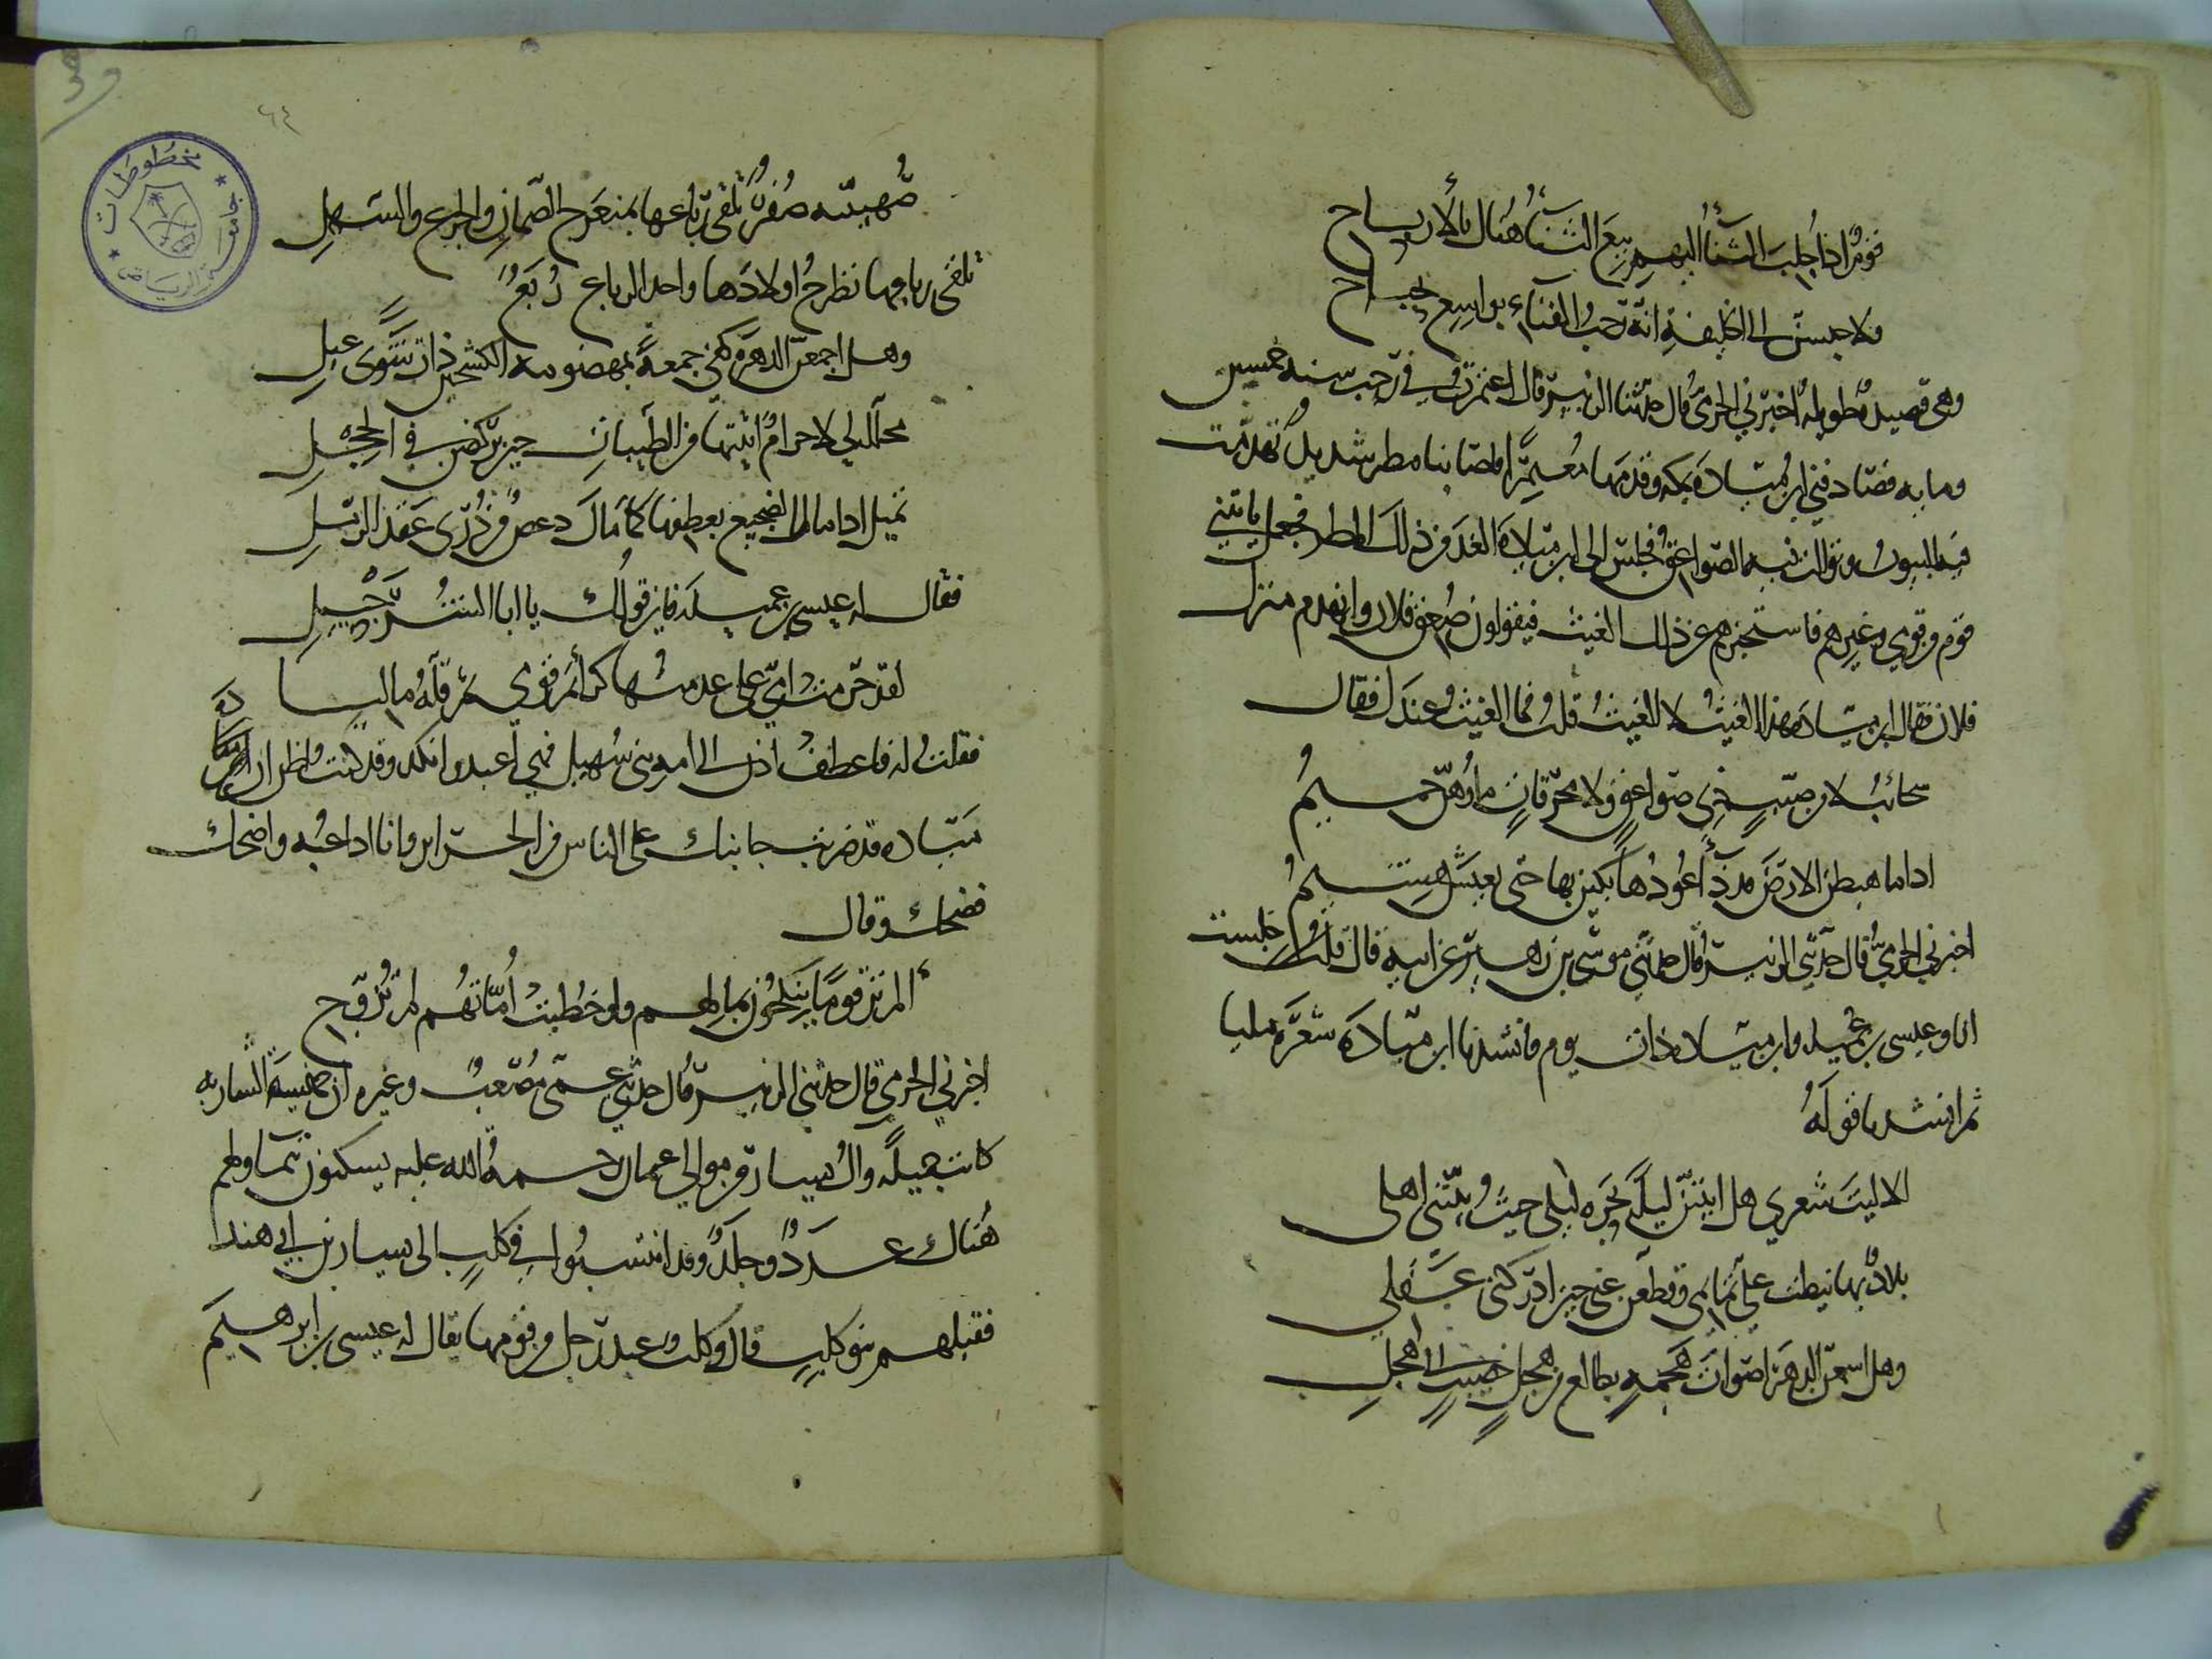 قومٌ اذا جُلبَ الثناءُ اليهم بيعَ الثناءُ هُناك بالأرباح
ولاجلسنّ الى الخليفة انّه رحبُ الفناء بواسع نجباح
وهى قصيدةٌ طويلةٌ اخبرني الحرميُّ قال حدّثنا الزبيرُ قال اعتمرتُ في رجب سنه خمسين
وما به فصادفني ابن ميّاده بمكه وقدمها معتمرًا فاصابنا مطر شديد تهدّمت
فيه البيوتُ وتوالت فيه الصواعقُ فجلس الى ابن ميّادة الغدَ من ذلك المطر فجعل ياتيني
قوم من قومي وغيرهم فاستخبرهم عن ذلك الغيث فيقولون صُعق فلان وانهدم منزل
فلان فقال ابن ميّاده هذا العيثُ لا الغيثُ قلتُ فما الغيثُ عندك فقال
سحائبُ لا من صيّبٍ ذي صواعقٍ ولا محرقاتٍ ماؤهنّ حميمُ
اذا ما هبطن الارض قد مات عُودُها بكين بها حتى يعيش هشيمُ
اخبرني الحرميُّ قال حدّثني الزبيرُ قال حدّثني موسى بن زهير عن ابيه قال جلست
انا وعيسى بن عُميله وابن ميّاده ذات يوم فانشدنا ابن ميّادَة شعرَه مليا
ثم انشدنا قولَهُ
الا ليتَ شعري هل ابيتنّ ليلةً بحَرّه ليلى حيثُ ربّتني اهلي
بلادٌ بها نيطت علىّ تمائمي وقطّعن عني حين ادركني عقلي
وهل اسمعنّ الدهرَ اصواتَ هجمةٍ تطالع من هجلٍ خصيبٍ الى هجلِ
٦٤
مخطوطات
جامعة الرياض
صُهيبيّه صُفرٌ تلقى رباعها بمنعرج الصّمان والجرع والسهلِ
تلقى رباعها تطرحُ اولادَها واحد الرباع رُبَعٌ
وهل اجمعنّ الدهرَ كفي جمعةً بمهضومه الكشحين ذات شوًى عبلِ
محلّلةٍ لي لا حرامٌ اتيتها من الطيبات حين تركض في الحجلِ
تميل اذا مال الضجيع بعطفها كما مالَ دعصٌ من ذُرى عقد الرملِ
فقال له عيسى بن عميلَه فاين قولك يا ابا الشُّرَحْبيلِ
لقد حرّمت امّي على عدمتُها كرائمَ قومي ثمّ قلّهُ ماليا
فقلتُ له فاعطفْ اذن الى امه بني سُهيل فهي اعبد وانكد وقد كنت اظن ان
ميّاده قد ضربت جانبك على الناس من الحرائر وانا اداعبُه واضحك
فضحك وقال
الم تر قومًا ينكحُون بمالهم ولو خطبتْ أُمّاتهُم لم تُزوّج
اخبرني الحرمي قال حدثني الزبيرُ قال حدّثني عمّى مُصعبٌ وغيره ان حسينةَ اليساريه
كانت جميلةً وآلُ يسارٍ من موالي عثمان رحمهُ الله عليه يسكنون تيماء ولهم
هُناك عددٌ وجلَدٌ وقد انتسبُوا في كلبٍ الى يسار بن ابي هند
فقبلهم بنو كلبٍ قال وكانت عند رجل من قومها يقال له عيسى بن ابراهيم